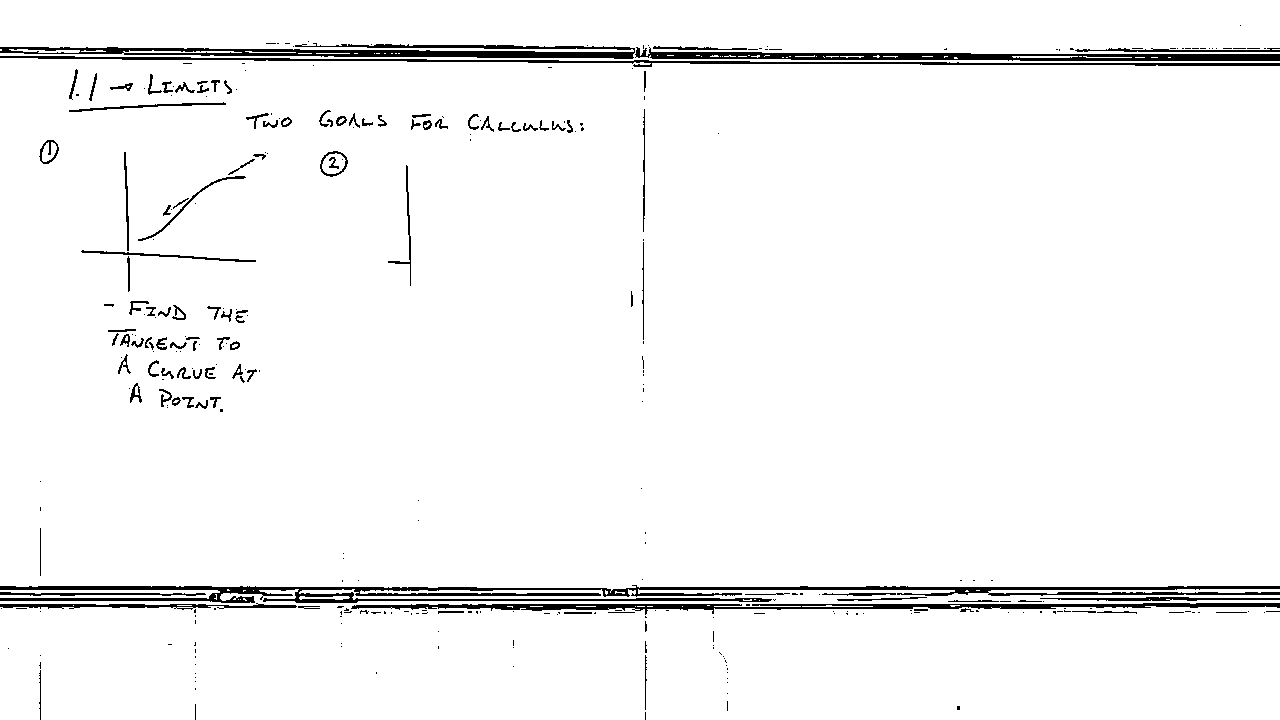 1.1 → LIMITS
TWO GOALS FOR CALCULUS:
① ②
- FIND THE
TANGENT TO
A CURVE AT
A POINT.